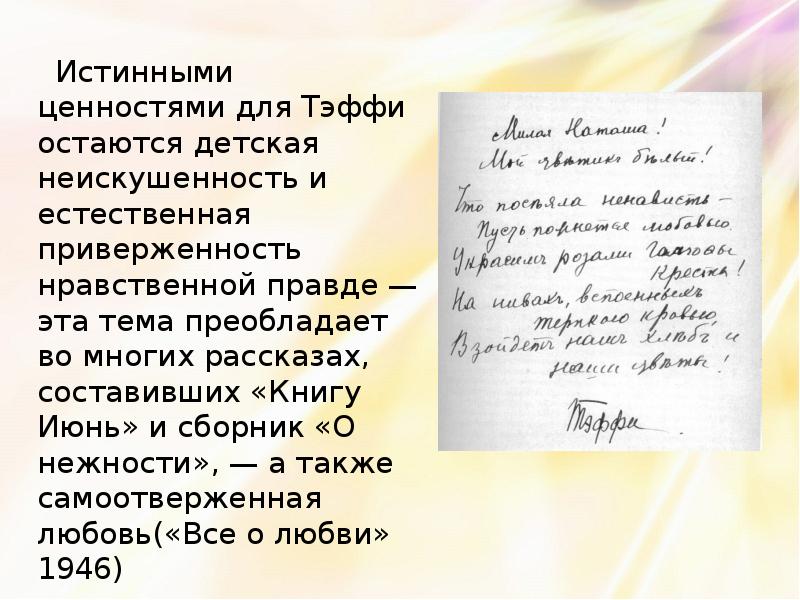 Истинными
ценностями для Тэффи
остаются детская
неискушенность и
естественная
приверженность
нравственной правде —
эта тема преобладает
во многих рассказах,
составивших «Книгу
Июнь» и сборник «О
нежности», — а также
самоотверженная
любовь(«Все о любви»
1946)
Милая Наташа!
Мой цвѣтикъ бѣлый!
Что посѣяла ненависть –
Пусть пожнется любовью.
Украсимъ розами Голгоѳы
Кресты!
На нивахъ, вспоенныхъ
терпкою кровью
Взойдетъ нашъ хлѣбъ и
наши цвѣты!
Тэффи.